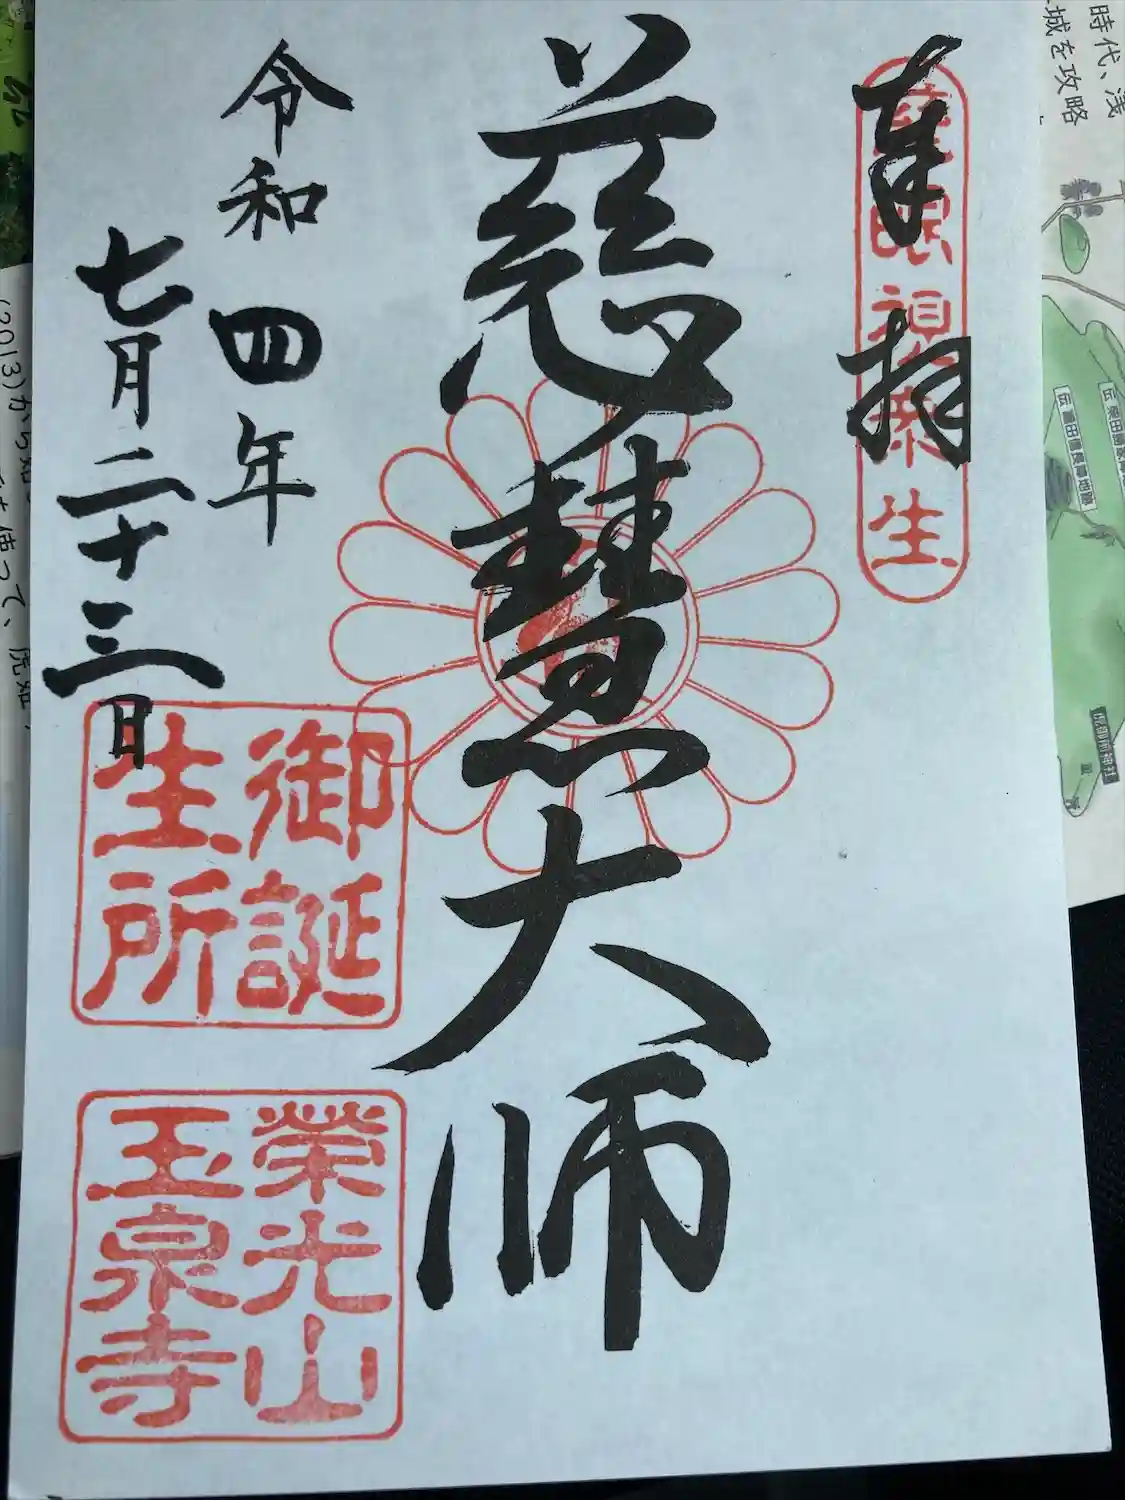 奉拝
慈眼視衆生
慈慧大師
令和四年
七月二十三日
御誕
生所
榮光山
玉泉寺
時代、浅
城を攻略
(2013)から
使って、虎姫